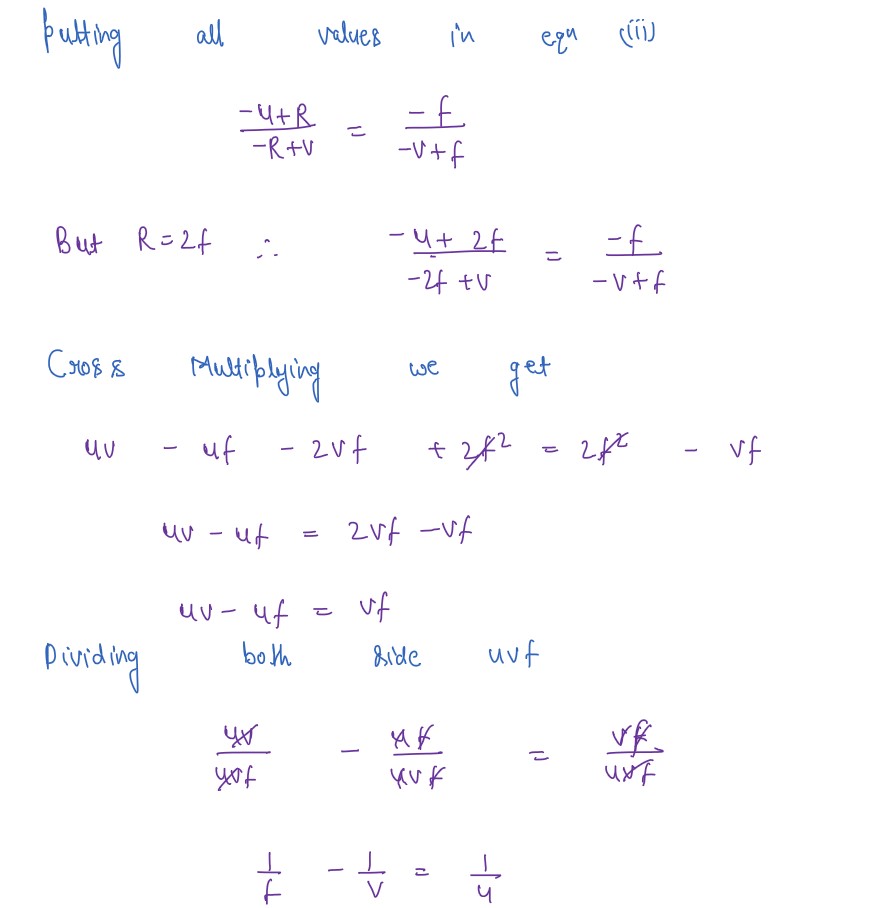 putting all values in equ (iii)
-u+R / -R+v = -f / -v+f
But R=2f ∴ -u+2f / -2f+v = -f / -v+f
Cross Multiplying we get
uv - uf - 2vf + 2f² = 2f² - vf
uv - uf = 2vf - vf
uv - uf = vf
Dividing both side uvf
uv / uvf - uf / uvf = vf / uvf
1/f - 1/v = 1/u